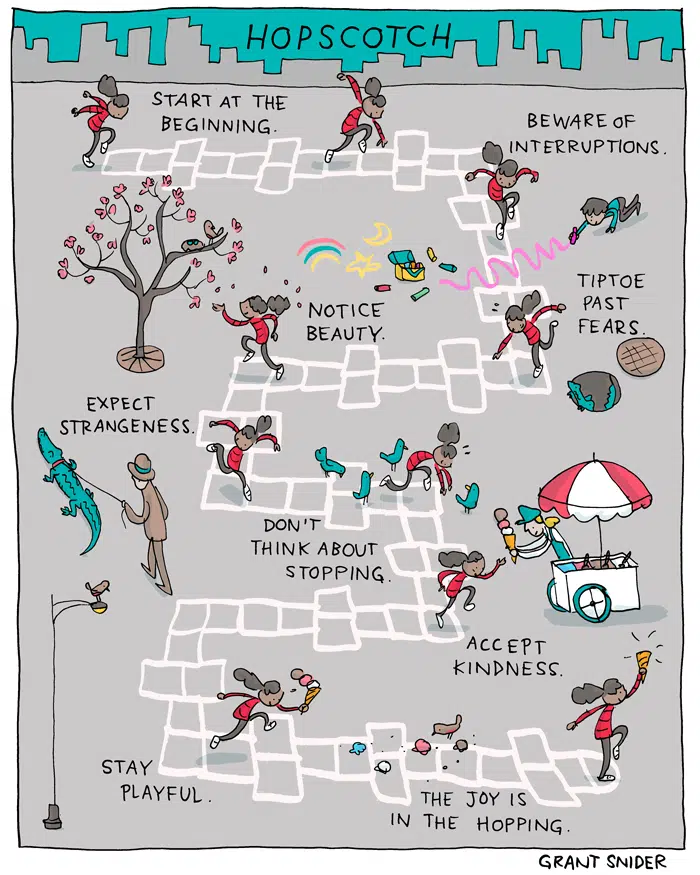 HOPSCOTCH
START AT THE
BEGINNING.
BEWARE OF
INTERRUPTIONS.
TIPTOE
PAST
FEARS.
NOTICE
BEAUTY.
EXPECT
STRANGENESS.
DON'T
THINK ABOUT
STOPPING.
ACCEPT
KINDNESS.
STAY
PLAYFUL.
THE JOY IS
IN THE HOPPING.
GRANT SNIDER